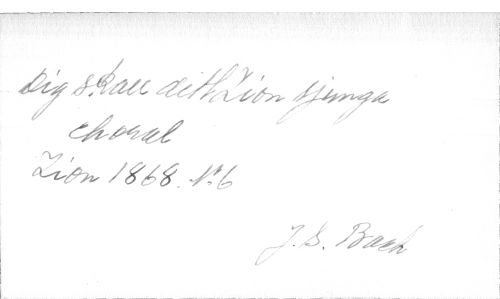 Dig skall ditt Zion sjunga
choral
Zion 1868. Nr 6
J. S. Bach